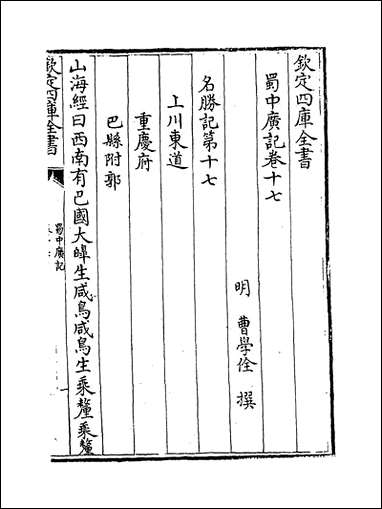 欽定四庫全書
蜀中廣記卷十七
明 曹學佺 撰
名勝記第十七
上川東道
重慶府
巴縣附郭
山海經曰西南有巴國大皥生咸鳥咸鳥生乘釐乘釐
欽定四庫全書
蜀中廣記